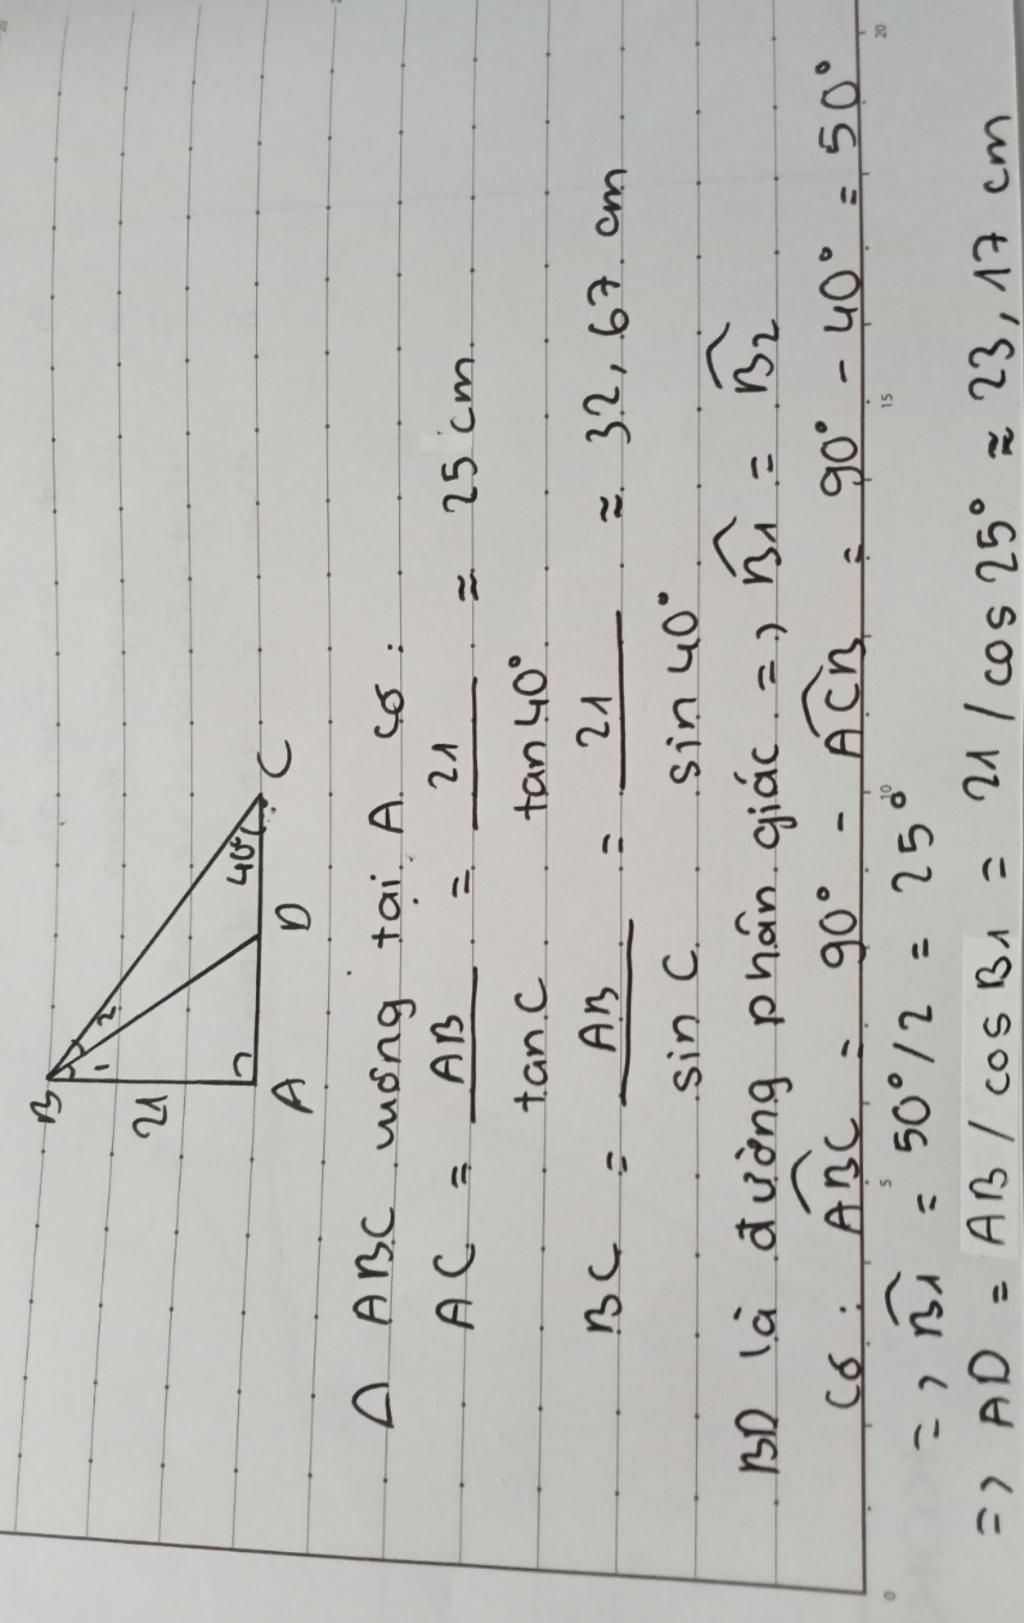 B
21
1
2
40°
A
D
C
Δ ABC vuông tại A có:
AC = AB / tanC = 21 / tan40° ≈ 25 cm
BC = AB / sin C = 21 / sin 40° ≈ 32,67 cm
BD là đường phân giác => B̂1 = B̂2
Có: ABC = 90° - ACB = 90° - 40° = 50°
=> B̂1 = 50°/2 = 25°
=> AD = AB / cos B1 = 21 / cos 25° ≈ 23,17 cm
0 5 10 15 20